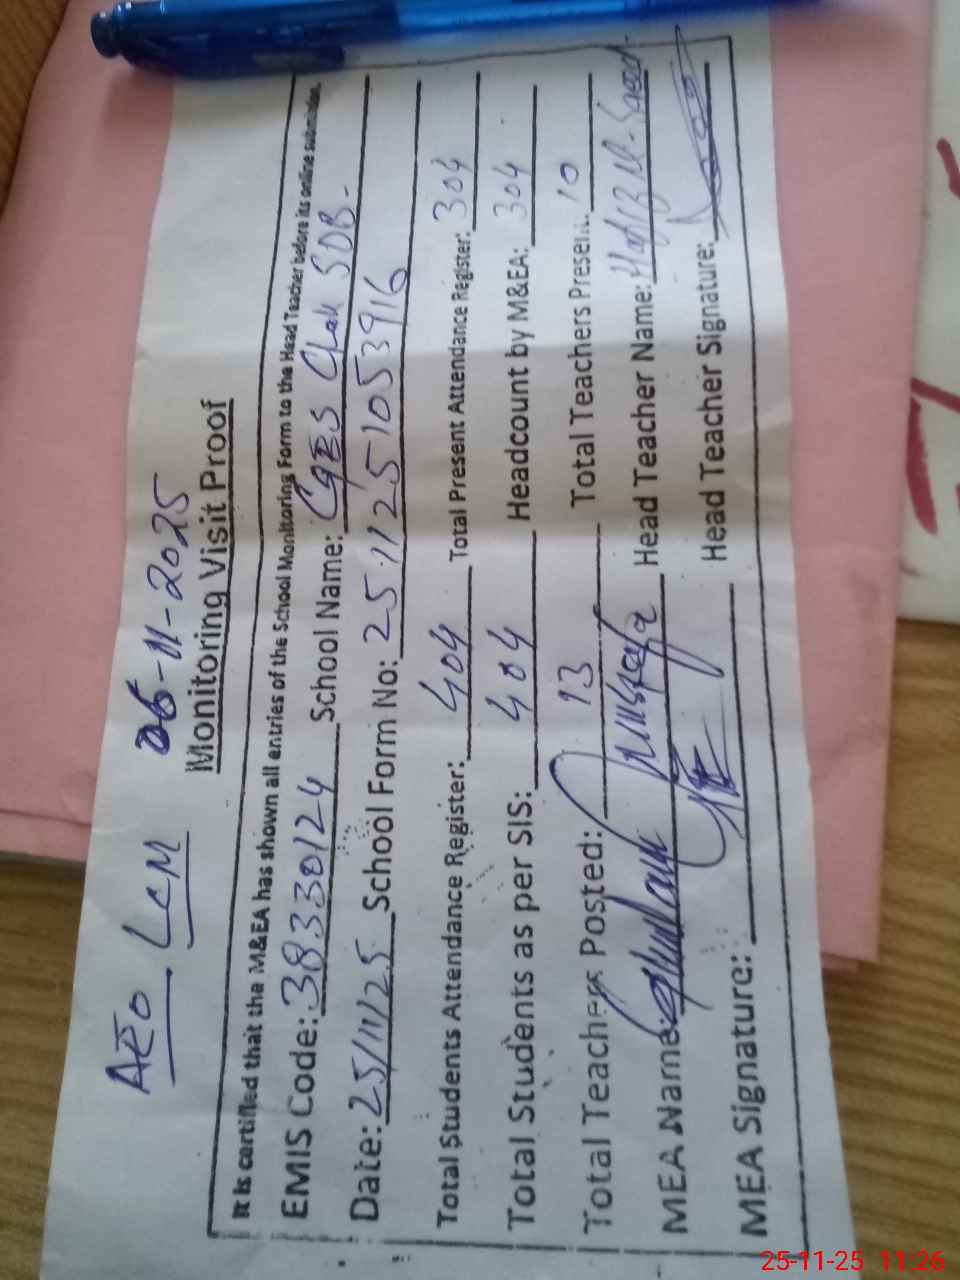 AEO LCM 06-11-2025
Monitoring Visit Proof
It is certified that the M&EA has shown all entries of the School Monitoring Form to the Head Teacher before its online submission.
EMIS Code: 38330124 School Name: GGES Chak 5DB-
Date: 25/11/25 School Form No: 2511251053916
Total Students Attendance Register: 404 Total Present Attendance Register: 304
Total Students as per SIS: 404 Headcount by M&EA: 304
Total Teachers Posted: 13 Total Teachers Present: 10
MEA Name: Ghulam Mustafa Head Teacher Name: Hafiz M. Saeed
MEA Signature: Head Teacher Signature:
25-11-25 11:26